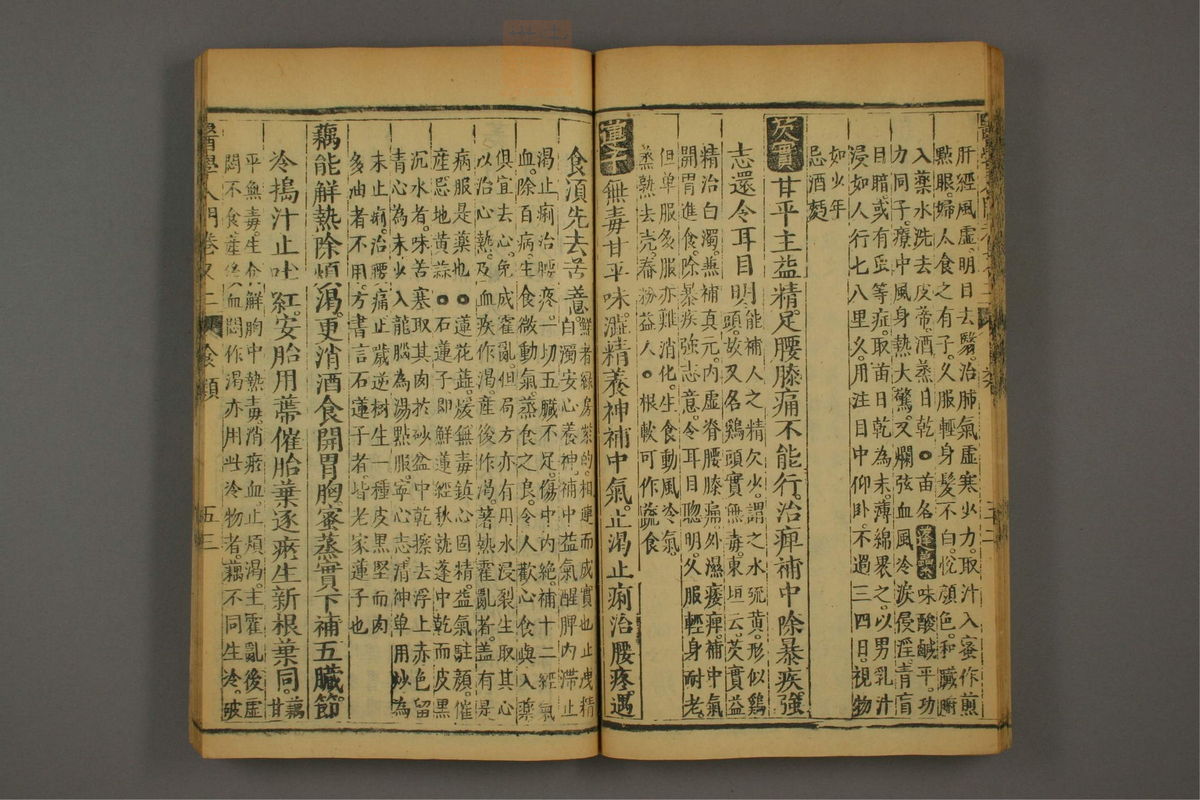 肝經風虛明目去翳治肺氣虛寒少力取汁入蜜作煎
點眼婦人食之有子久服輕身髮不白悅顏色和臟腑
入藥水洗去皮蒂酒蒸日乾苗名蓬蘽味酸鹹平功
力同子療中風身熱大驚又爛弦血風冷淚侵淫青盲
目暗或有蟲等症取苗日乾為末薄綿裹之以男乳汁
浸如人行七八里久用注目中仰卧不過三四日視物
如少年
忌酒麪
芡實甘平主益精足腰膝痛不能行治痺補中除暴疾強
志還令耳目明能補人之精欠少謂之水硫黃形似鷄
頭故又名鷄頭實無毒東垣云芡實益
精治白濁兼補真元內虛脊腰膝痛外濕痿痺補中氣
開胃進食除暴疾強志意令耳目聰明久服輕身耐老
但單服多服亦難消化生食動風冷氣
蒸熟去壳舂粉益人根軟可作蔬食
蓮子無毒甘平味澁精養神補中氣止渴止痢治腰疼遇
醫學入門卷之二 食類 五三
食湏先去苦薏鮮者綠房紫的相連而成實也止洩精
白濁安心養神補中益氣醒脾內滯止
渴止痢治腰疼一切五臟不足傷中內絕補十二經氣
血除百病生食微動氣蒸食之良令人歡心食與入藥
俱宜去心免成霍亂但局方亦有用水浸裂生取其心
以治心熱及血疾作渴產後作渴暑熱霍亂者盖有是
病服是藥也蓮花蕋煖無毒鎮心固精益氣駐顏催
產忌地黃蒜石蓮子即鮮蓮經秋就蓬中乾而皮黑
沉水者味苦寒取其肉於砂盆中乾擦去浮上赤色留
青心為末少入龍腦為湯點服寧心志清神單用炒為
末止痢治腰痛止噦逆樹生一種皮黑堅而肉
多油者不用方書言石蓮子者皆老家蓮子也
藕能解熱除煩渴更消酒食開胃胸蜜蒸實下補五臟節
冷搗汁止吐紅安胎用蒂催胎葉逐瘀生新根葉同藕甘
平無毒生食解胸中熱毒消瘀血止煩渴主霍亂後虛
悶不食產後血悶作渴亦用此冷物者藕不同生冷破